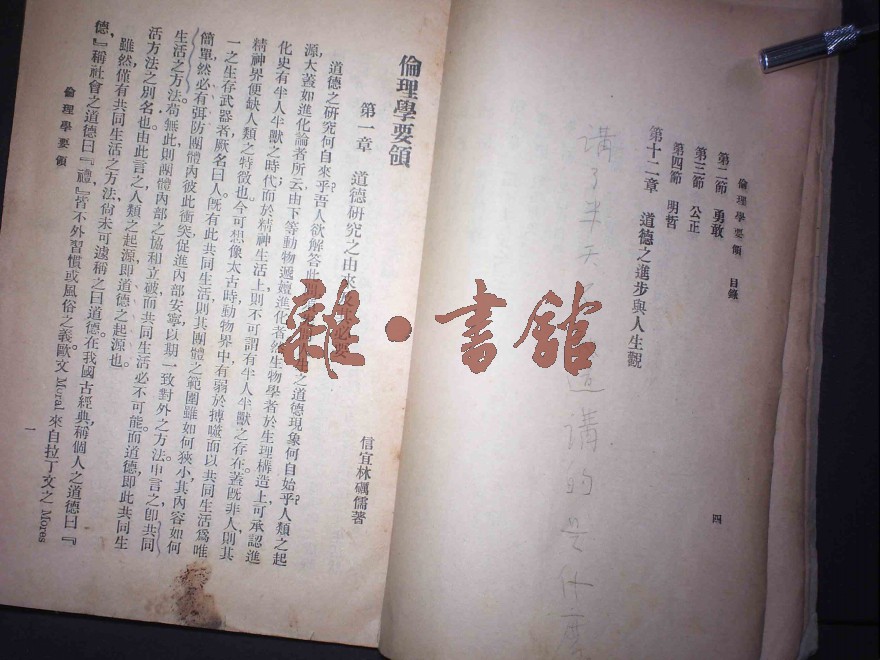 倫理學要領 目錄
第二節 勇敢
第三節 公正
第四節 明哲
第十二章 道德之進步與人生觀
四
講了半天
講的是什麼
雜·書館
倫理學要領
第一章 道德研究之由來及其必要
信宜林礪儒著
道德之研究何自來乎?吾人欲解答此 之道德現象何自始乎?人類之起
源,大蓋如進化論者所云,由下等動物遞嬗進化者。然生物學者於生理構造上可承認進
化史有半人半獸之時代,而於精神生活上則不可謂有半人半獸之存在。蓋既非人,則其
精神界便缺人類之特徵也。今可想像太古時動物界中,有弱於搏噬而以共同生活為唯
一之生存武器者,厥名曰人。既有此共同生活,則其團體之範圍雖如何狹小,其內容如何
簡單,然必有弭防團體內彼此衝突,促進內部安寧,以期一致對外之方法。申言之,即共同
生活之方法。苟無此則團體內部之協和立破,而共同生活必不可能。而道德即此共同生
活方法之別名也。由此言之,人類之起源,即道德之起源也。
雖然,僅有共同生活之方法,尙未可遽稱之曰道德。在我國古經典,稱個人之道德曰『
德』,稱社會之道德曰『禮』,皆不外習慣或風俗之義。歐文 Moral 來自拉丁文之 Mores
倫理學要領
一